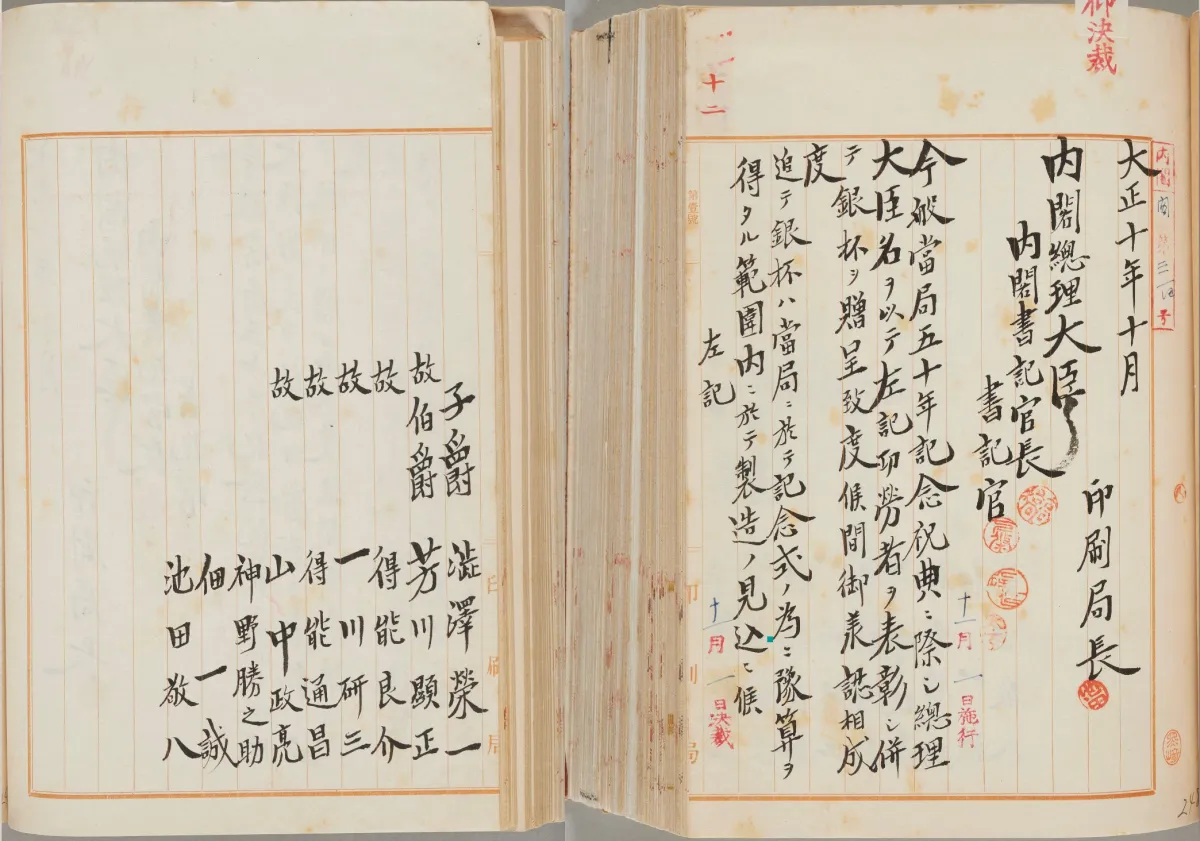 御決裁
十二
内閣
閣
第三
号
大正十年十月
印刷局長
内閣總理大臣
内閣書記官長
書記官
十一月一日施行
今般當局五十年記念祝典ニ際シ總理
大臣名ヲ以テ左記功勞者ヲ表彰シ併
テ銀杯ヲ贈呈致度候間御承認相成
度
追テ銀杯ハ當局ニ於テ記念式ノ為ニ豫算ヲ
得タル範圍内ニ於テ製造ノ見込ニ候
左記
十一月一日決裁
第壹號
印刷局
子爵 澁澤榮一
故伯爵 芳川顯正
故 得能良介
故 一川研三
故 得能通昌
故 山中政亮
神野勝之助
佃一誠
池田敬八
印刷局